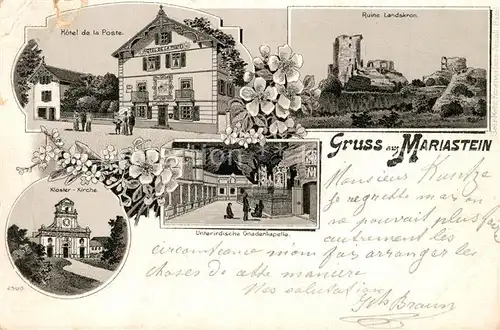 Hôtel de la Poste.
HÔTEL DE LA POSTE
Ruine Landskron.
Gruss aus MARIASTEIN
Kloster-Kirche.
Unterirdische Gnadenkapelle.
Monsieur Kuntze
Je regrette mais on
ne pouvait plus
autrement les
circomstance m'om far arranger les
choses de cette maniere
Mes salutation
Braun